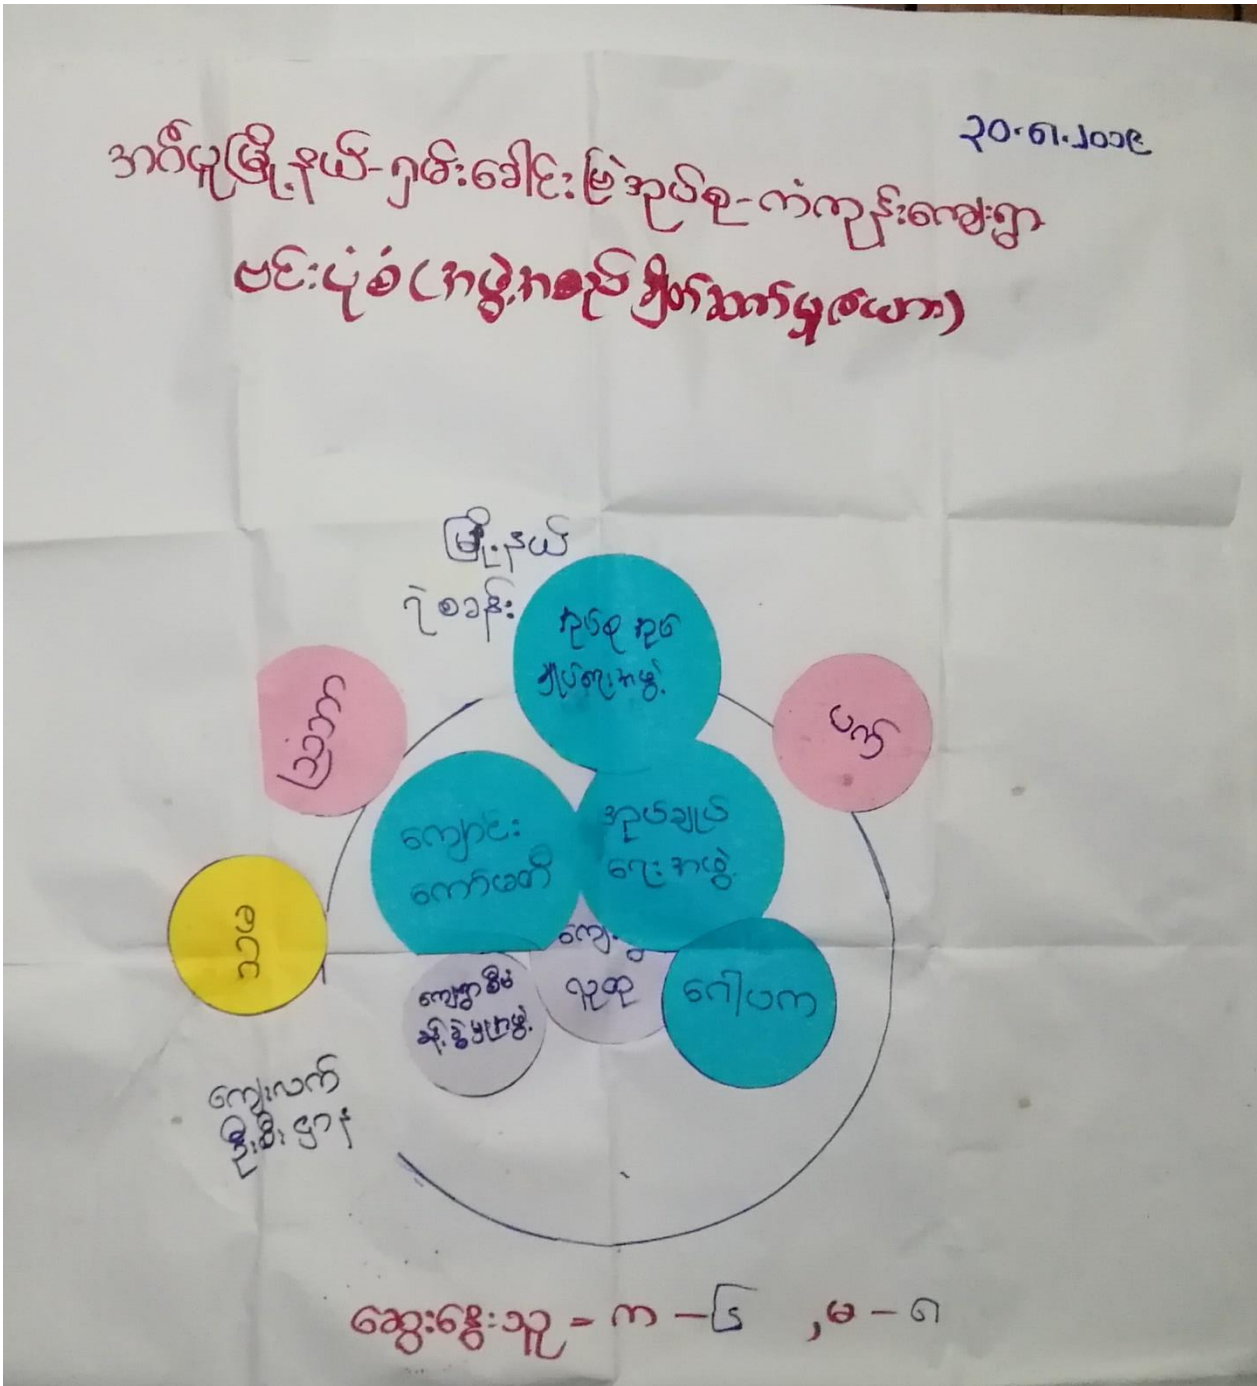 ၃၀.၈.၂၀၁၉
အင်္ဂပူမြို့နယ်-ရှမ်းခေါင်းမြဲအုပ်စု-ကံကုန်းကျေးရွာ
ဗင်းပုံစံ(အဖွဲ့အစည်းချိတ်ဆက်မှုဇယား)
မြို့နယ်
ရဲစခန်း
အုပ်စုအုပ်
ချုပ်ရေးအဖွဲ့
ပက်
ကျောင်း
ကော်မတီ
အုပ်ချုပ်
ရေးအဖွဲ့
ကျေးရွာစီမံ
ခန့်ခွဲမှုအဖွဲ့
လူထု
ဂေါပက
ကျေးလက်
ဦးစီးဌာန
ဆွေးနွေးသူ = က - ၆ , မ - ၈